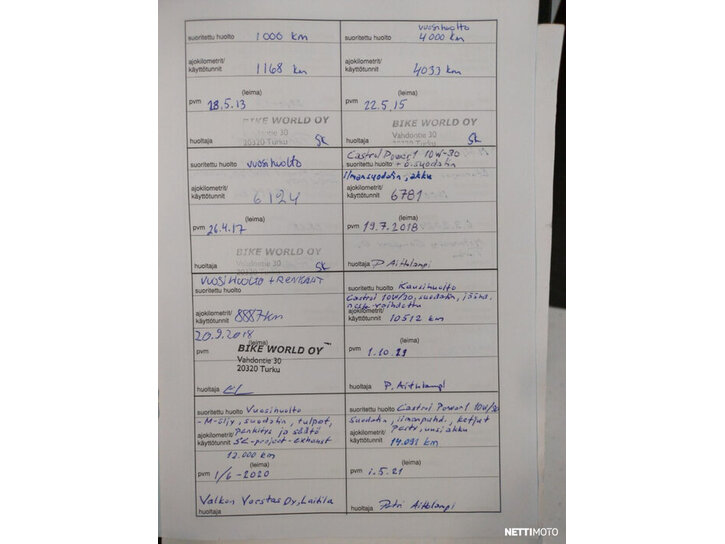 suoritettu huolto 1000 km
ajokilometrit/
käyttötunnit 1168 km
(leima)
pvm 18.5.13
BIKE WORLD OY
Vahdontie 30
20320 Turku
huoltaja SK
vuosihuolto
suoritettu huolto 4000 km
ajokilometrit/
käyttötunnit 4033 km
(leima)
pvm 22.5.15
BIKE WORLD OY
Vahdontie 30
20320 Turku
huoltaja SK
vuosihuolto
suoritettu huolto
ajokilometrit/
käyttötunnit 6124
(leima)
pvm 26.4.17
BIKE WORLD OY
Vahdontie 30
20320 Turku
huoltaja SK
Castrol Power1 10W-30
suoritettu huolto + ö.suodatin
ilmansuodatin, akku
ajokilometrit/
käyttötunnit 6781
(leima)
pvm 19.7.2018
huoltaja P. Aittolampi
VUOSIHUOLTO + RENKAAT
suoritettu huolto
ajokilometrit/
käyttötunnit 8887 km
20.9.2018
(leima)
pvm
BIKE WORLD OY
Vahdontie 30
20320 Turku
huoltaja
suoritettu huolto Kausihuolto
Castrol 10W/30, suodatin, jäähd.
ajokilometrit/
käyttötunnit 10512 km
(leima)
pvm 1.10.21
huoltaja P. Aittolampi
suoritettu huolto Vuosihuolto
-M-öljy, suodatin, tulpat,
ajokilometrit/ Penkitys ja säätö
käyttötunnit SC-project-exhaust
12.000 km
(leima)
pvm 1/6-2020
Valkon Varstas Oy, Laitila
huoltaja
suoritettu huolto Castrol Power1 10W/30
suodatin, ilmanpuhd., ketjut
ajokilometrit/ uusi akku
käyttötunnit 14.091 km
(leima)
pvm 1.5.21
huoltaja Petri Aittolampi
NETTIMOTO